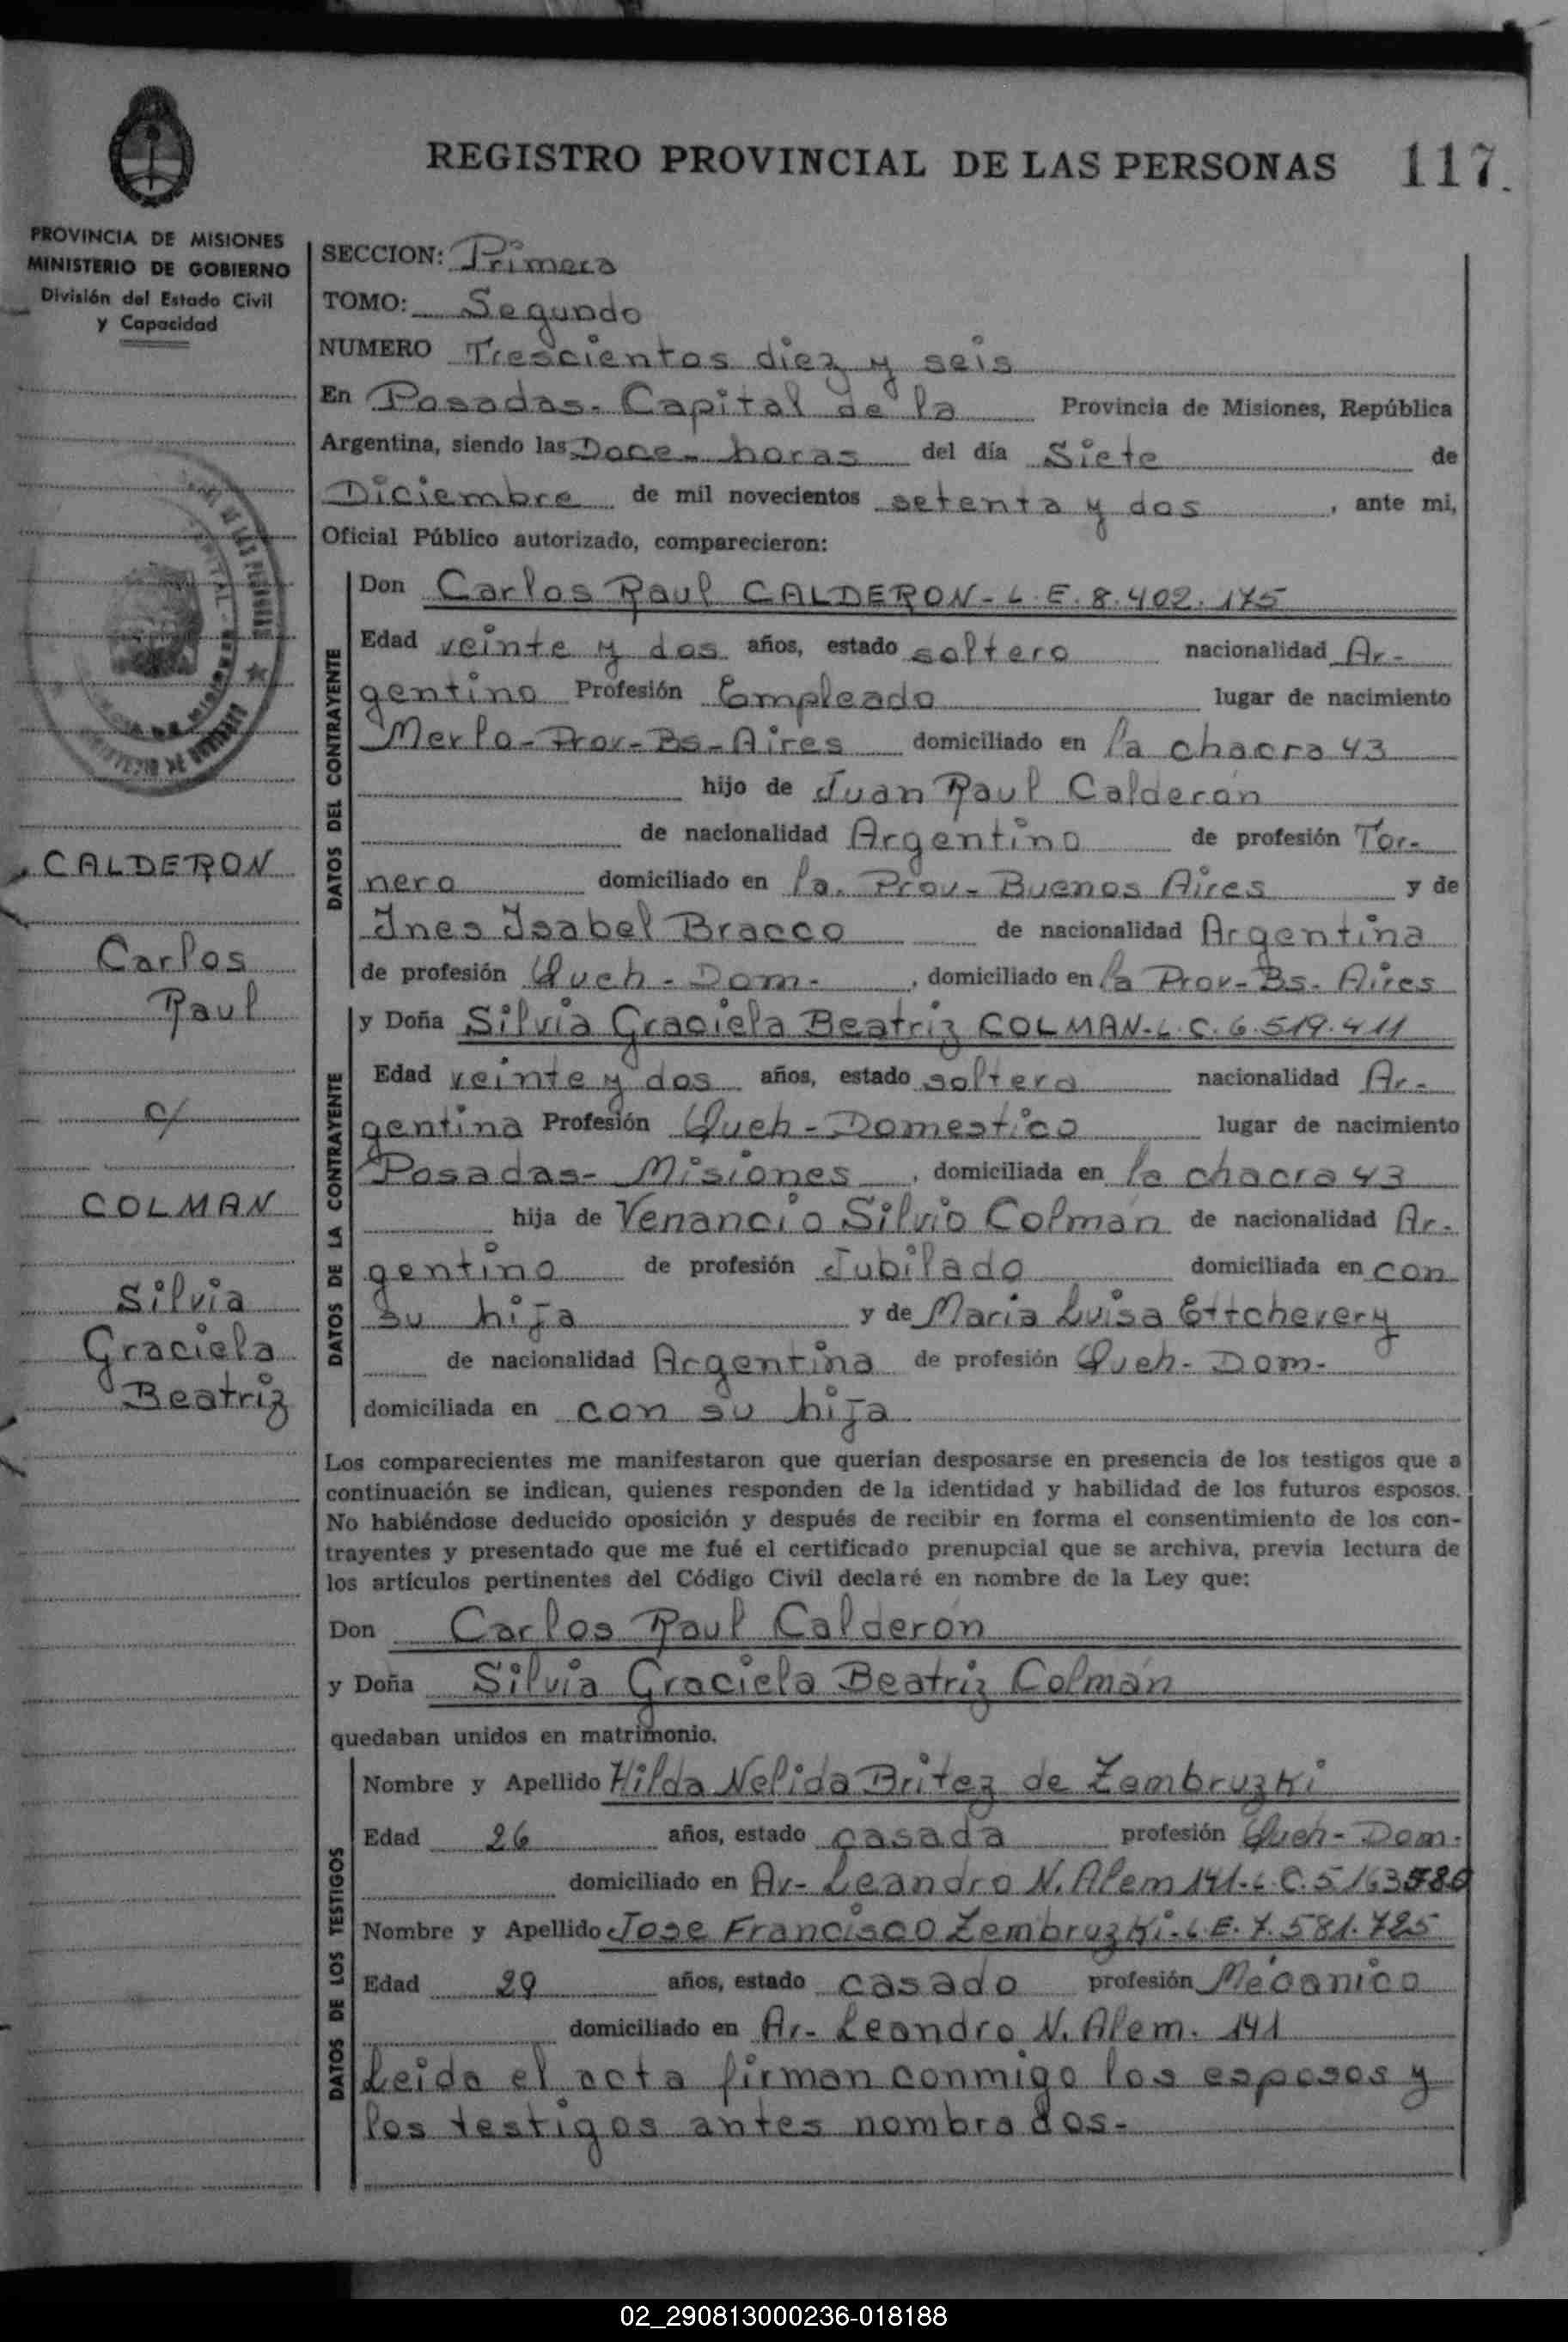 REGISTRO PROVINCIAL DE LAS PERSONAS 117.
PROVINCIA DE MISIONES
MINISTERIO DE GOBIERNO
División del Estado Civil
y Capacidad
SECCION: Primera
TOMO: Segundo
NUMERO Trescientos diez y seis
En Posadas. Capital de la Provincia de Misiones, República
Argentina, siendo las Doce - horas del día Siete de
Diciembre de mil novecientos setenta y dos, ante mi,
Oficial Público autorizado, comparecieron:
DATOS DEL CONTRAYENTE
Don Carlos Raul CALDERON - L.E. 8.402.175
Edad veinte y dos años, estado soltero nacionalidad Ar-
gentino Profesión Empleado lugar de nacimiento
Merlo - Prov - Bs - Aires domiciliado en la chacra 43
hijo de Juan Raul Calderón
de nacionalidad Argentino de profesión Tor-
nero domiciliado en la. Prov - Buenos Aires y de
Ines Isabel Bracco de nacionalidad Argentina
de profesión Queh - Dom -, domiciliado en la Prov - Bs - Aires
DATOS DE LA CONTRAYENTE
y Doña Silvia Graciela Beatriz COLMAN - L.C. 6.519.411
Edad veinte y dos años, estado soltera nacionalidad Ar-
gentina Profesión Queh - Domestico lugar de nacimiento
Posadas - Misiones, domiciliada en la chacra 43
hija de Venancio Silvio Colmán de nacionalidad Ar-
gentino de profesión Jubilado domiciliada en con
su hija y de Maria Luisa Ettchevery
de nacionalidad Argentina de profesión Queh - Dom -
domiciliada en con su hija
CALDERON
Carlos
Raul
c/
COLMAN
Silvia
Graciela
Beatriz
Los comparecientes me manifestaron que querían desposarse en presencia de los testigos que a
continuación se indican, quienes responden de la identidad y habilidad de los futuros esposos.
No habiéndose deducido oposición y después de recibir en forma el consentimiento de los con-
trayentes y presentado que me fué el certificado prenupcial que se archiva, previa lectura de
los artículos pertinentes del Código Civil declaré en nombre de la Ley que:
Don Carlos Raul Calderón
y Doña Silvia Graciela Beatriz Colmán
quedaban unidos en matrimonio.
DATOS DE LOS TESTIGOS
Nombre y Apellido Hilda Nelida Britez de Zembruzki
Edad 26 años, estado casada profesión Queh - Dom -
domiciliado en Av - Leandro N. Alem 141 - L.C. 5163580
Nombre y Apellido Jose Francisco Zembruzki - L.E. 7.581.725
Edad 29 años, estado casado profesión Mécanico
domiciliado en Av - Leandro N. Alem. 141
Leida el acta firman conmigo los esposos y
los testigos antes nombrados -
02_290813000236-018188